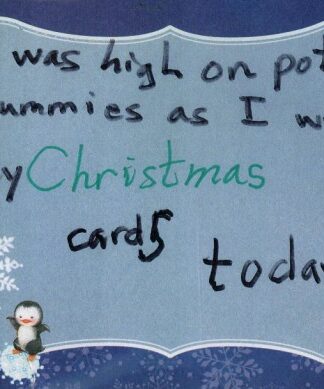 was high on pot
ummies as I w
y Christmas
cards
today